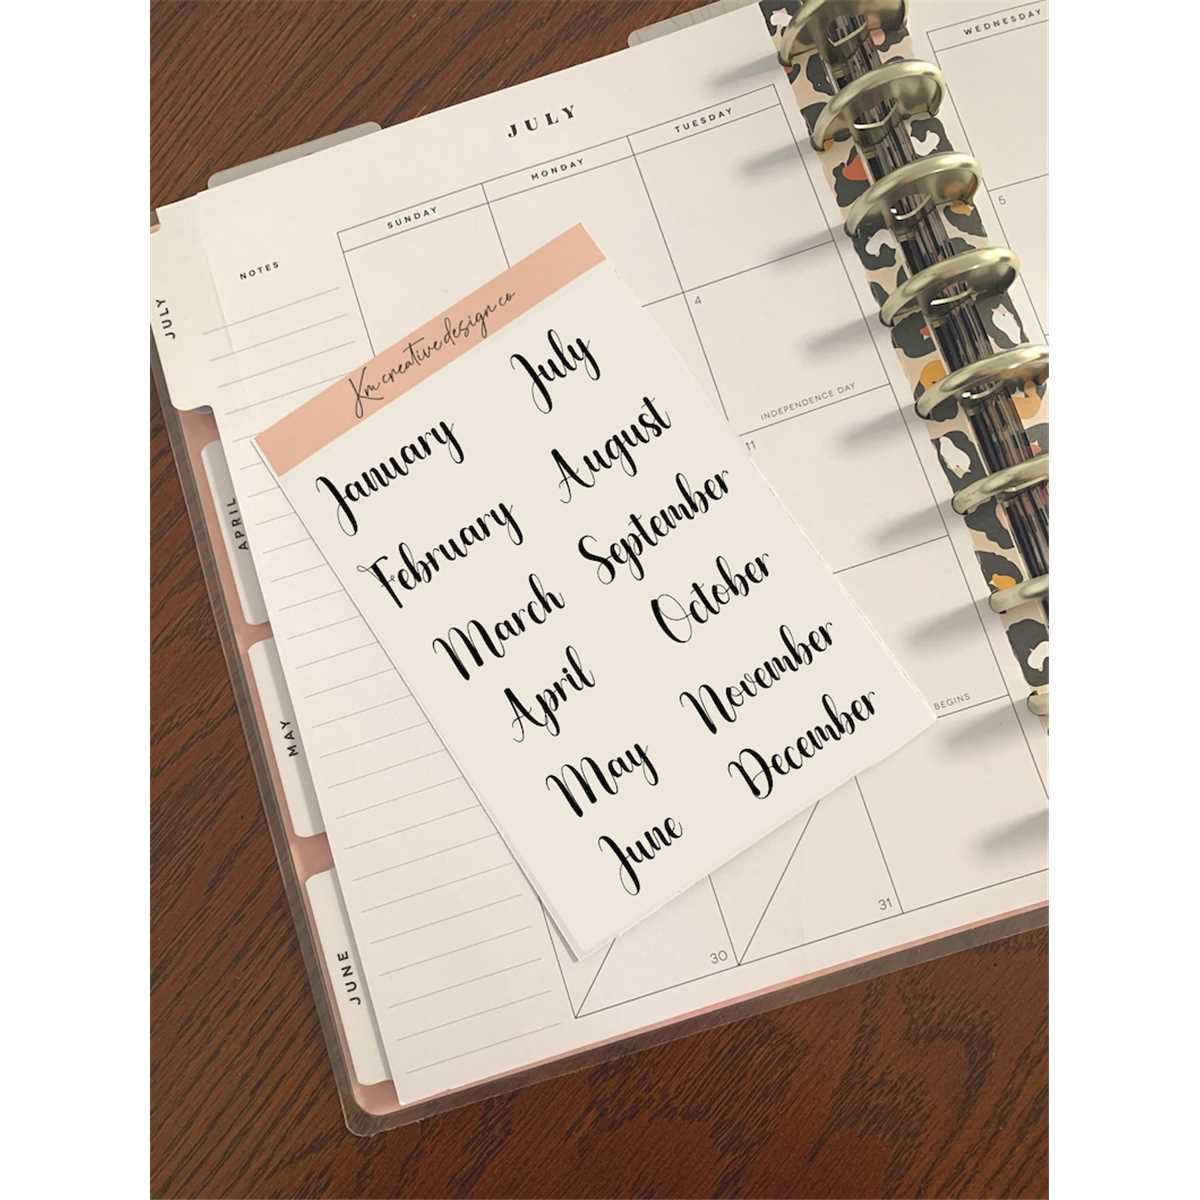 JULY
SUNDAY
MONDAY
TUESDAY
WEDNESDAY
NOTES
JULY
APRIL
MAY
JUNE
4
5
INDEPENDENCE DAY
11
BEGINS
30
31
Km creative design co
January
February
March
April
May
June
July
August
September
October
November
December